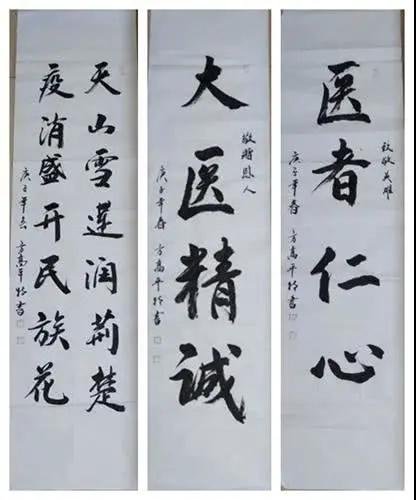 致敬英雄
医者仁心
庚子年春 方高平特书
敬赠恩人
大医精誠
庚子年春 方高平特书
天山雪莲润荆楚
疫消盛开民族花
庚子年春 方高平特书